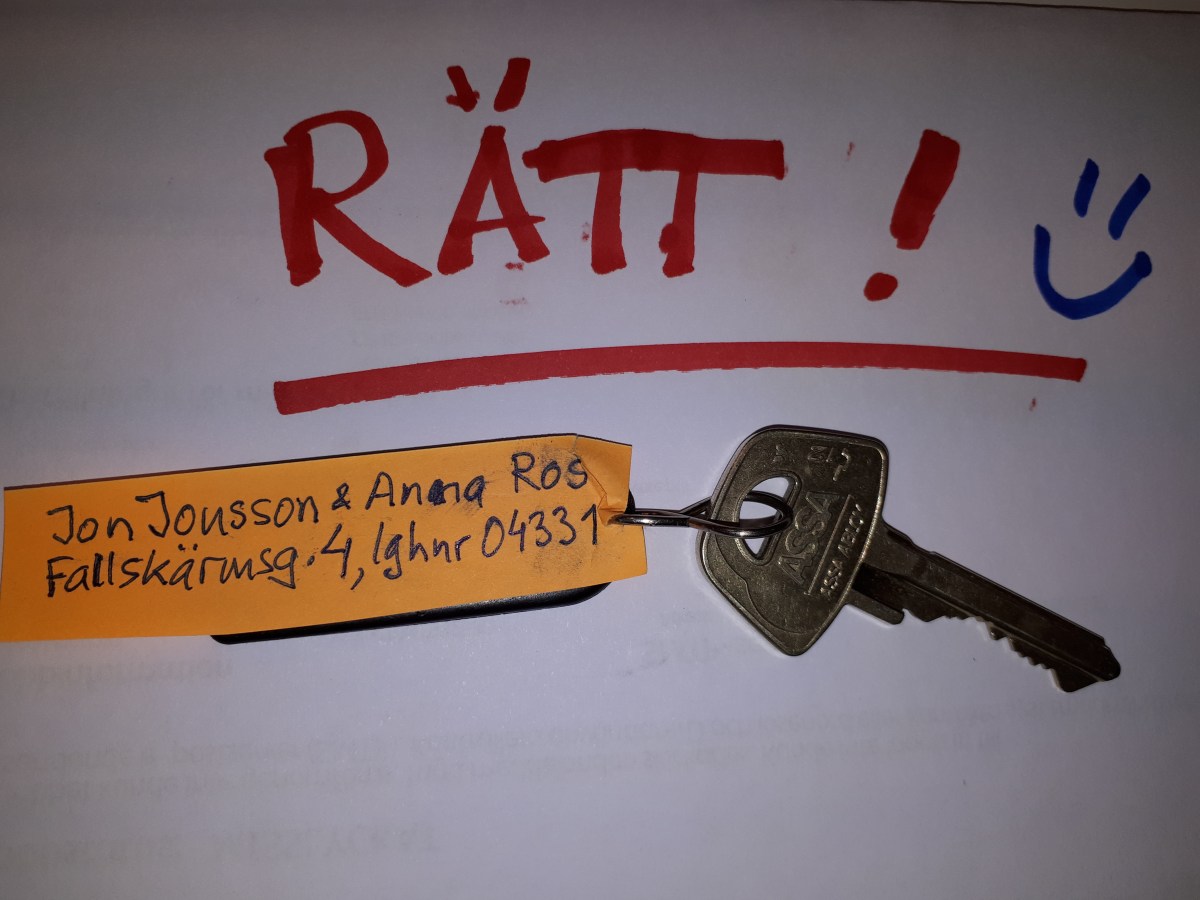 RÄTT!
Jon Jonsson & Anna Ros
Fallskärmsg. 4, lghnr 04331
ASSA
ASSA ABLOY